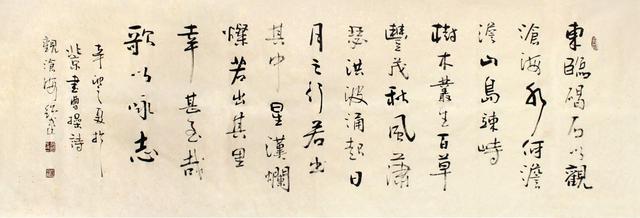 東臨碣石以觀
滄海水何澹
澹山島竦峙
樹木叢生百草
豐茂秋風蕭
瑟洪波涌起日
月之行若出
其中星漢爛
燦若出其里
幸甚至哉
歌以咏志
辛卯之夏於
北京書曹操詩
觀滄海